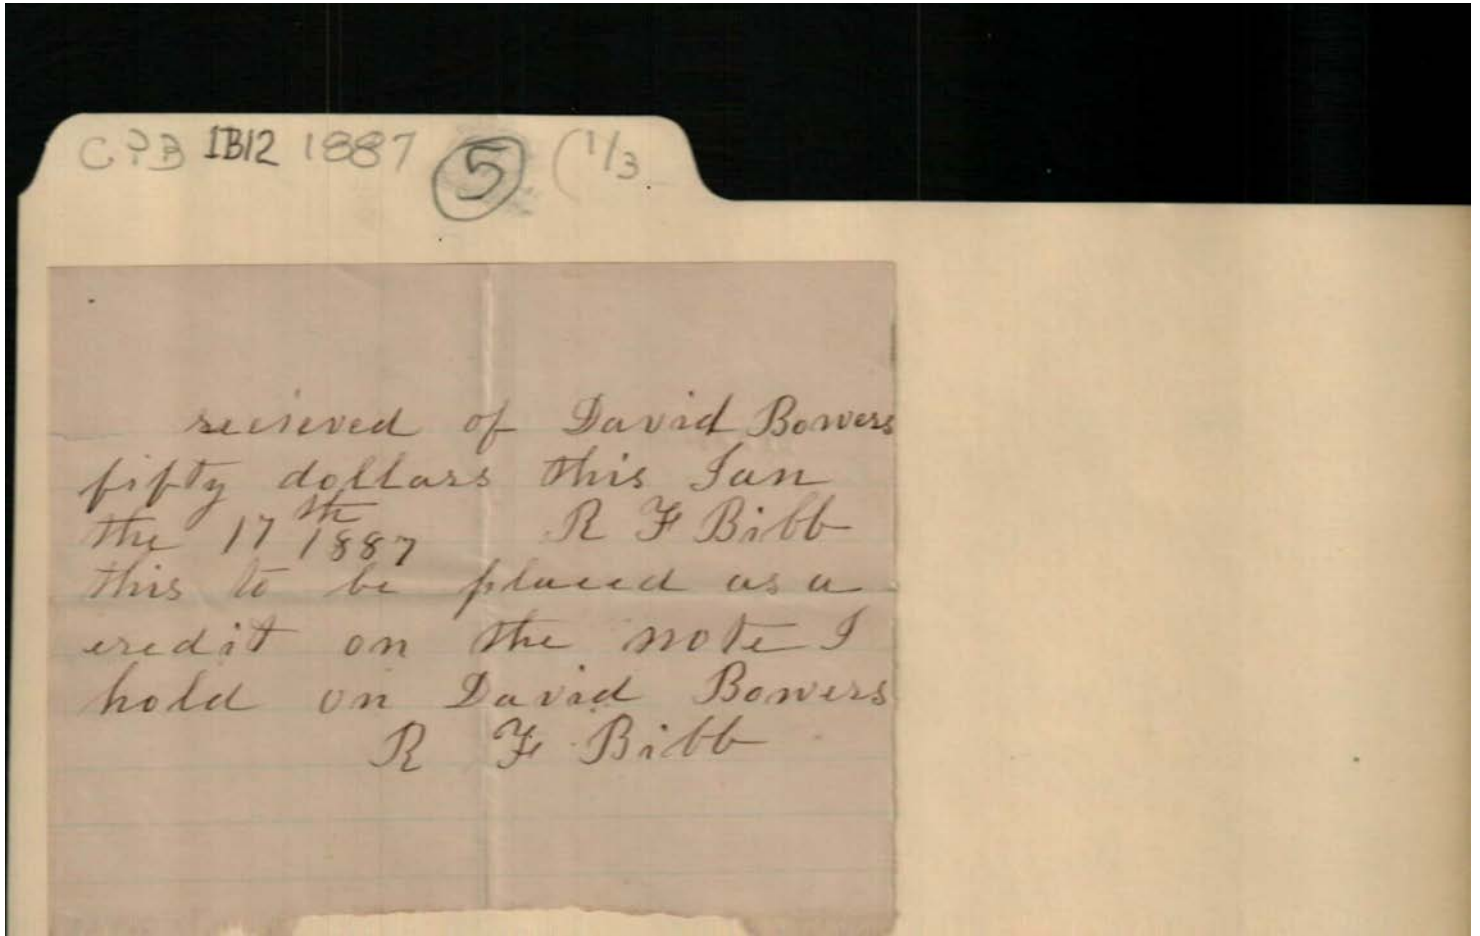 C P B IB12 1887 5 (1/3
recieved of David Bowers
fifty dollars this Jan
the 17th 1887 R F Bibb
this to be placed as a
credit on the note I
hold on David Bowers
R F Bibb